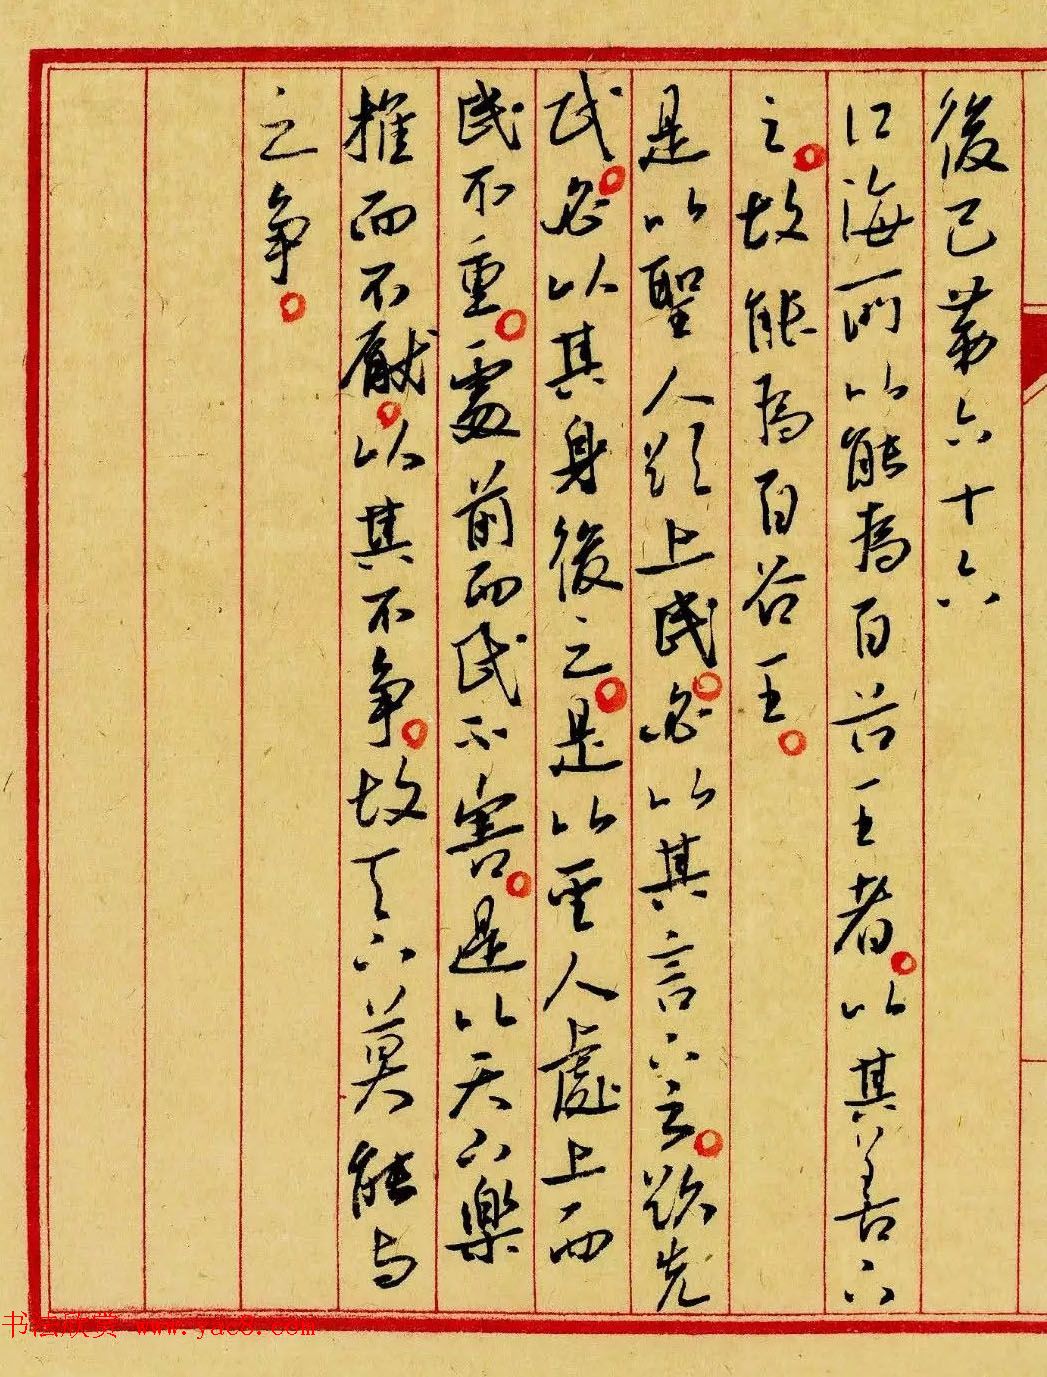 後己第六十六
江海所以能為百谷王者。以其善下
之。故能為百谷王。
是以聖人欲上民。必以其言下之。欲先
民。必以其身後之。是以聖人處上而
民不重。處前而民不害。是以天下樂
推而不厭。以其不爭。故天下莫能与
之爭。
书法欣赏 www.yac8.com